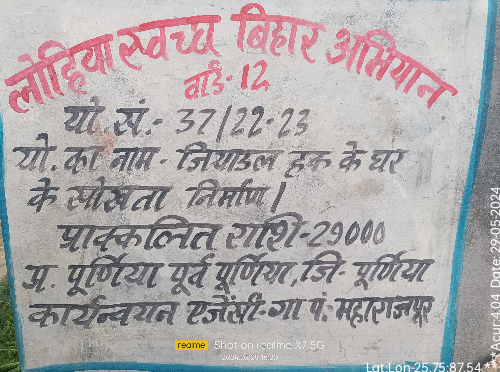 लोहिया स्वच्छ बिहार अभियान
वार्ड- 12
यो. सं.- 37/22-23
यो. का नाम - जियाउल हक के घर
के सोखता निर्माण।
प्राक्कलित राशि-29000
प्र. पूर्णिया पूर्व पूर्णिया, जि- पूर्णिया
कार्यन्वयन एजेंसी-ग्रा पं. महाराजपुर
realme Shot on realme X7 5G
2024.05.29 16:20
Lat:Lon-25.75:87.54 *** Acur:4.04, Date: 29-05-2024